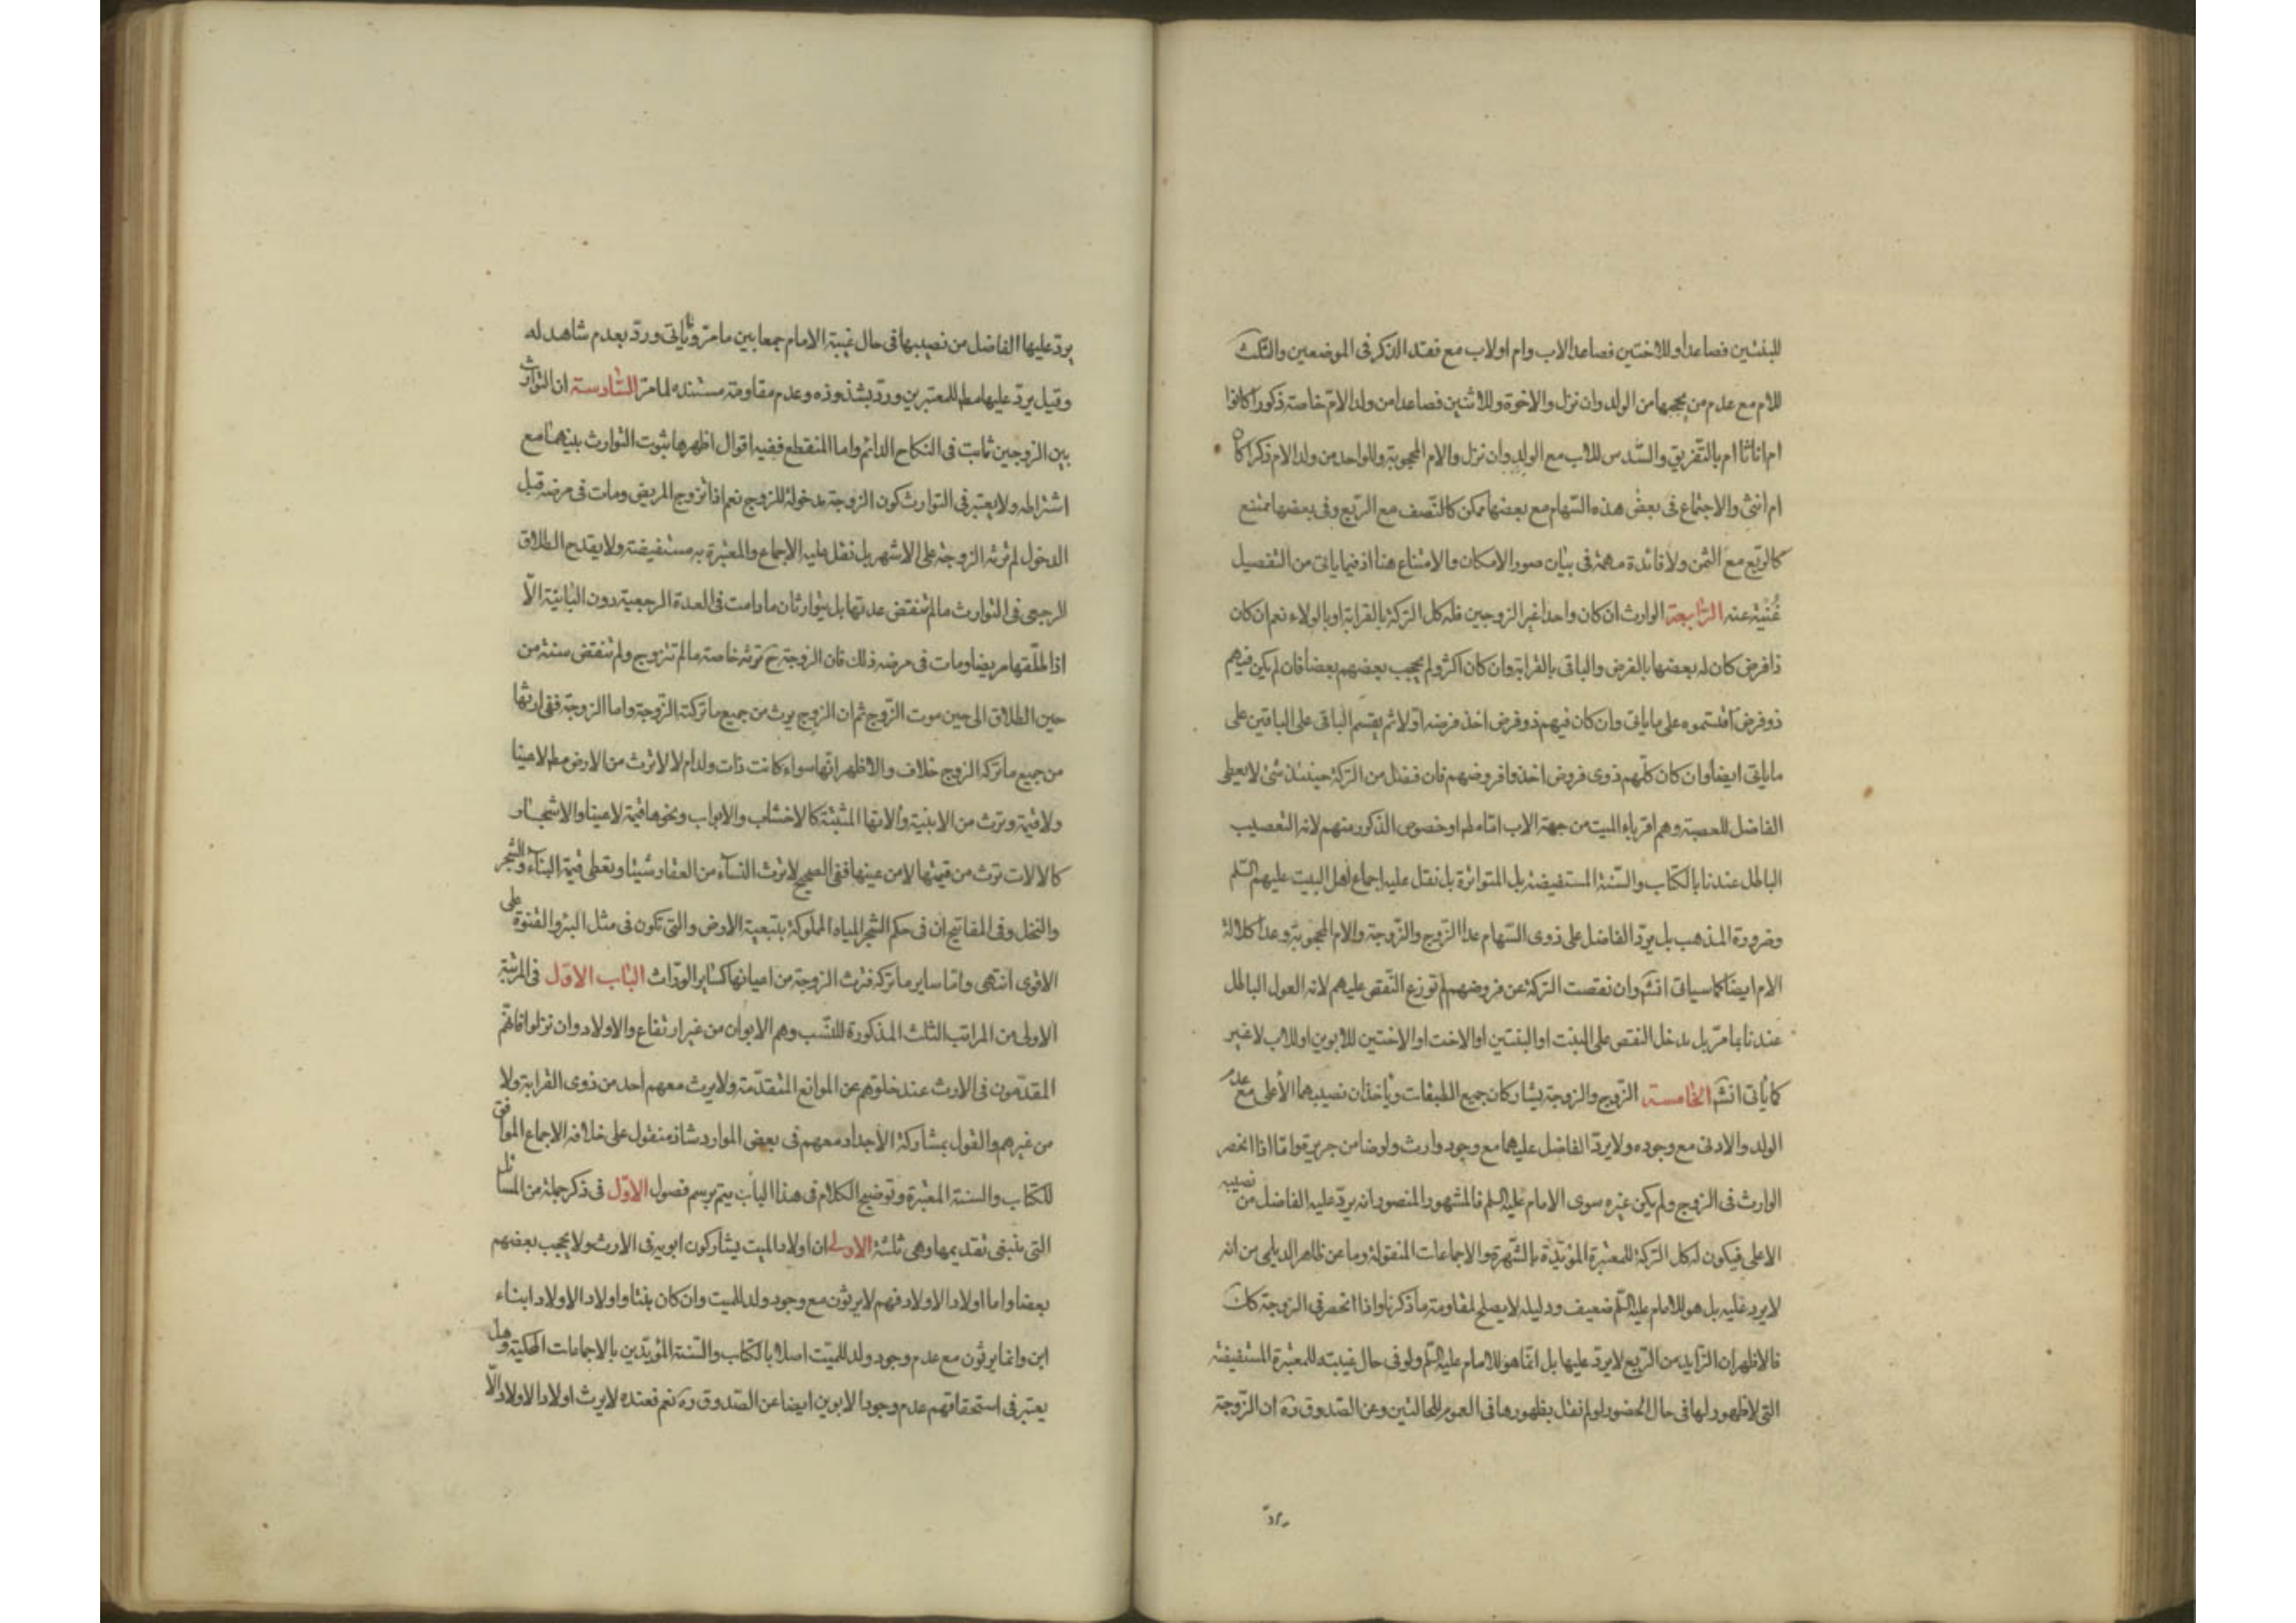 للبنتين فصاعدا وللاختين فصاعدا لاب وام او لاب مع فقد الذكر فى الموضعين والثلث
للام مع عدم من يحجبها من الولد وان نزل والاخوة وللاثنين فصاعدا من ولد الامّ خاصة ذكورا كانوا
ام اناثا ام بالتّفريق والسّدس للاب مع الولد وان نزل والام المحجوبة وللواحد من ولد الام ذكرا كان
ام انثى والاجتماع فى بعض هذه السّهام مع بعضها ممكن كالنّصف مع الربّع وفى بعضها ممتنع
كالرّبع مع الثمن ولا فائدة مهمّة فى بيان صور الامكان والامتناع هنا اذ فيما ياتى من التفصيل
غُنْيَة عنه الرّابعة الوارث ان كان واحدا غير الزوجين فله كل التركة بالقرابة او بالولاء نعم ان كان
ذا فرض كان له بعضها بالفرض والباقى بالقرابة وان كان اكثر ولم يحجب بعضهم بعضا فان لم يكن فيهم
ذو فرض اقتسموه على ما ياتى وان كان فيهم ذو فرض اخذ فرضه اوّلا ثم يقسم الباقى على الباقين على
ما ياتى ايضا وان كان كلّهم ذوى فروض اخذوا فروضهم فان فضل من التركة حينئذ شئ لا يعطى
الفاضل للعصبة وهم اقرباء الميت من جهة الاب امّا مط او خصوص الذكور منهم لانه التعصيب
الباطل عندنا بالكتاب والسّنة المستفيضة بل المتواترة بل نقل عليه اجماع اهل البيت عليهم السّلم
وضرورة المذهب بل يردّ الفاضل على ذوى السّهام عدا الزّوج والزّوجة والام المحجوبة وعدا كلالة
الام ايضا كما سياتى انشَ وان نقصت التركة عن فروضهم لم توزع النّقص عليهم لانه العول الباطل
عندنا بما مرّ بل يدخل النقص على البنت او البنتين او الاخت او الاختين للابوين او للاب لا غير
كما يأتى انشَ الخامسة الزّوج والزوجة يشاركان جميع الطبقات وياخذان نصيبهما الأعلى مع عدم
الولد والادنى مع وجوده ولا يردّ الفاضل عليهما مع وجود وارث ولو ضامن جريرة وامّا اذا انحصر
الوارث فى الزوج ولم يكن غيره سوى الامام عليه السلم فالمشهور المنصور انه يردّ عليه الفاضل من نصيبه
الاعلى فيكون له كل التركة للمعتبرة المؤيّدة بالشّهرة والاجماعات المنقولة وما عن ظاهر الديلمى من انه
لا يرد عليه بل هو للامام عليه السّلم ضعيف ودليله لا يصلح لمقاومة ما ذكرنا واذا انحصر فى الزوجة كان
فالاظهر ان الزّايد من الرّبع لا يردّ عليها بل انّما هو للامام عليه السّلم ولو فى حال غيبته للمعتبرة المستفيضة
التى لا ظهور لها فى حال الحضور لو لم نقل بظهورها فى العموم للحالتين وعن الصّدوق رَه ان الزّوجة
يردّ
يردّ عليها الفاضل من نصيبها فى حال غيبة الامام جمعا بين ما مرّ وما يأتى وردّ بعدم شاهد له
وقيل يردّ عليها مط للمعتبرين وردّ بشذوذه وعدم مقاومة مستنده لما مرّ السّادسة ان التوارث
بين الزوجين ثابت فى النكاح الدائم واما المنقطع ففيه اقوال اظهرها ثبوت التوارث بينهما مع
اشتراطه ولا يعتبر فى التوارث كون الزوجة مدخولة للزوج نعم اذا تزوج المريض ومات فى مرضه قبل
الدخول لم ترثه الزوجة على الاشهر بل نقل عليه الاجماع والمعتبرة به مستفيضة ولا يقدح الطلاق
الرجعى فى التوارث ما لم تنقض عدتها بل يتوارثان ما دامت فى العدة الرجعية دون البائنة الّا
اذا طلّقها مريضا ومات فى مرضه ذلك فان الزوجة ح ترثه خاصة ما لم تتزوج ولم تنقض سنة من
حين الطلاق الى حين موت الزّوج ثم ان الزوج يرث من جميع ما تركته الزّوجة واما الزوجة ففى ارثها
من جميع ما تركه الزوج خلاف والاظهر انّها سواء كانت ذات ولد ام لا لا ترث من الارض مط لا عينا
ولا قيمة وترث من الابنية والاتها المثبتة كالاخشاب والابواب ونحوها قيمة لا عينا والاشجار
كالالات ترث من قيمتها لا من عينها ففى الصحيح لا ترث النسآء من العقار شيئا وتعطى قيمة البنآء والشجر
والنخل وفى المفاتيح ان فى حكم الشجر المياه المملوكة بتبعية الارض والتى تكون فى مثل البئر والقنوة على
الاقوى انتهى وامّا ساير ما تركه فترث الزوجة من اعيانها كساير الورّاث الباب الاوّل فى المرتبة
الاولى من المراتب الثلث المذكورة للنّسب وهم الابوان من غير ارتفاع والاولاد وان نزلوا فانّهم
المقدّمون فى الارث عند خلوّهم عن الموانع المتقدّمة ولا يرث معهم احد من ذوى القرابة ولا
من غيرهم والقول بمشاركة الأجداد معهم فى بعض الموارد شاذ منقول على خلافه الاجماع الموافق
للكتاب والسنة المعتبرة وتوضيح الكلام فى هذا الباب يتم برسم فصول الاوّل فى ذكر جملة من المسائل
التى ينبغى تقديمها وهى ثلثة الاولى ان اولاد الميت يشاركون ابويه فى الارث ولا يحجب بعضهم
بعضا واما اولاد الاولاد فهم لا يرثون مع وجود ولد للميت وان كان بنتا واولاد الاولاد ابناء
ابن وانما يرثون مع عدم وجود ولد للميّت اصلا بالكتاب والسّنة المؤيّدين بالاجماعات المحكيّة وهل
يعتبر فى استحقاقهم عدم وجود الابوين ايضا عن الصّدوق رَه نعم فعنده لا يرث اولاد الاولاد الّا